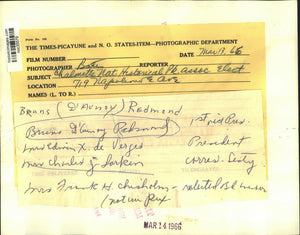 THE TIMES-PICAYUNE and N. O. STATES-ITEM—PHOTOGRAPHIC DEPARTMENT
FILM NUMBER
PHOTOGRAPHER REPORTER
SUBJECT Chalmette Nat. Historical Pk. Assoc. Elect
LOCATION 719 Napoleon Ave
NAMES (L. TO R.)
Bruns (D'Aunoy) Redmond
Bruns D'Aunoy Redmond 1st vid Pres.
Mrs Edwin X. de Verges President
Mrs Charles J. Larkin corres. Secty
Mrs Frank H. Chisholm
(not in Pix)
MAR 14 1966